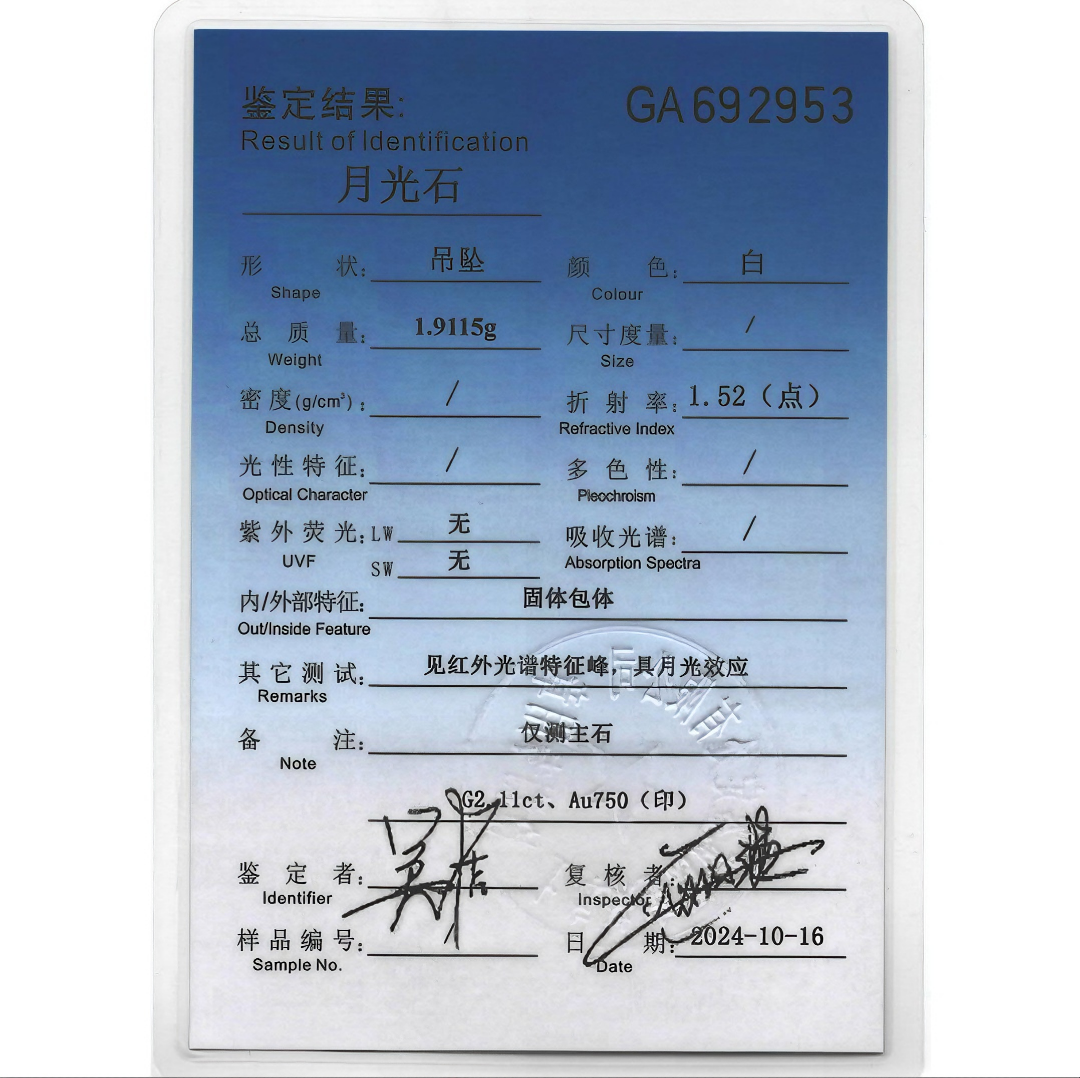 鉴定结果: GA692953
Result of Identification
月光石
形 状: 吊坠 颜 色: 白
Shape Colour
总 质 量: 1.9115g 尺寸度量: /
Weight Size
密度(g/cm³): / 折 射 率: 1.52（点）
Density Refractive Index
光性特征: / 多 色 性: /
Optical Character Pleochroism
紫外荧光: LW 无 吸收光谱: /
UVF SW 无 Absorption Spectra
内/外部特征: 固体包体
Out/Inside Feature
其它测试: 见红外光谱特征峰，具月光效应
Remarks
备 注: 仅测主石
Note
G2.11ct、Au750（印）
鉴 定 者: 复 核 者:
Identifier Inspector
样品编号: 日 期: 2024-10-16
Sample No. Date